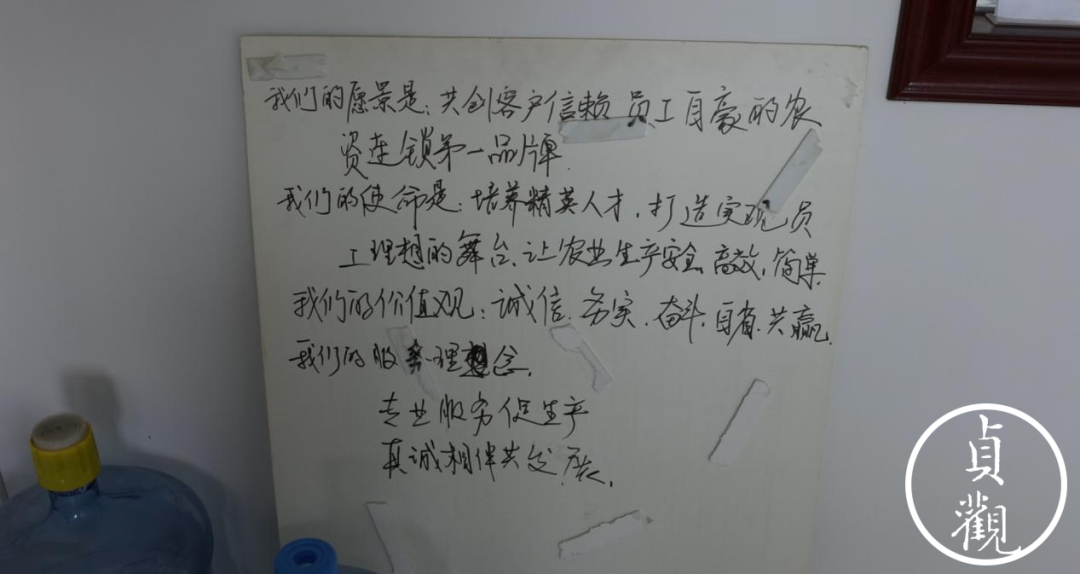 我们的愿景是：共创客户信赖 员工自豪的农
资连锁第一品牌
我们的使命是：培养精英人才，打造实现员
工理想的舞台、让农业生产安全、高效、简单
我们的价值观：诚信、务实、奋斗、自省、共赢
我们的服务理念，
专业服务促生产
真诚相伴共发展，
贞觀